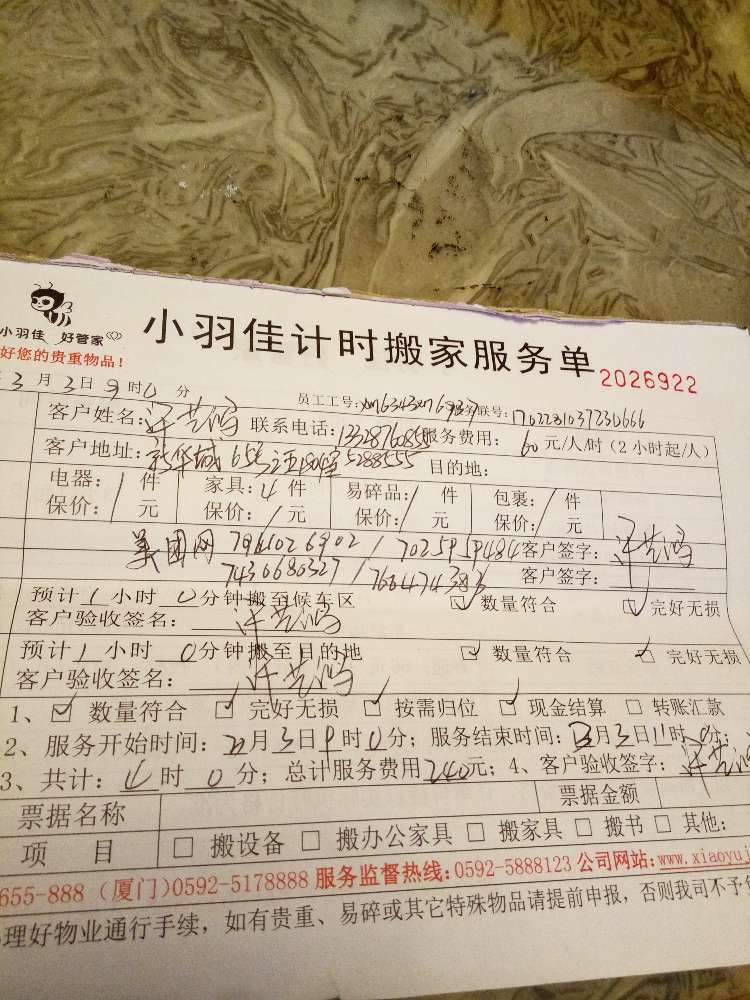 小羽佳 好管家
好您的贵重物品！
小羽佳计时搬家服务单 2026922
3月3日9时0分 员工工号: 联号:
客户姓名: 联系电话: 服务费用: 60元/人/时 (2小时起/人)
客户地址: 新华城 目的地:
电器: / 件 家具: 4 件 易碎品: / 件 包裹: / 件
保价: / 元 保价: / 元 保价: / 元 保价: / 元
美團网 7025959484 客户签字:
7430680327 / 客户签字:
预计1小时0分钟搬至候车区 ☑数量符合 ☑完好无损
客户验收签名:
预计1小时0分钟搬至目的地 ☑数量符合 ☑完好无损
客户验收签名:
1、☑数量符合 ☑完好无损 ☑按需归位 ☑现金结算 □转账汇款
2、服务开始时间: 月3日9时0分; 服务结束时间: 月3日11时0分;
3、共计: 4时0分; 总计服务费用240元; 4、客户验收签字:
票据名称 票据金额
项 目 □搬设备 □搬办公家具 □搬家具 □搬书 □其他:
655-888 (厦门)0592-5178888 服务监督热线:0592-5888123 公司网站:www.xiaoyuj
理好物业通行手续，如有贵重、易碎或其它特殊物品请提前申报，否则我司不予